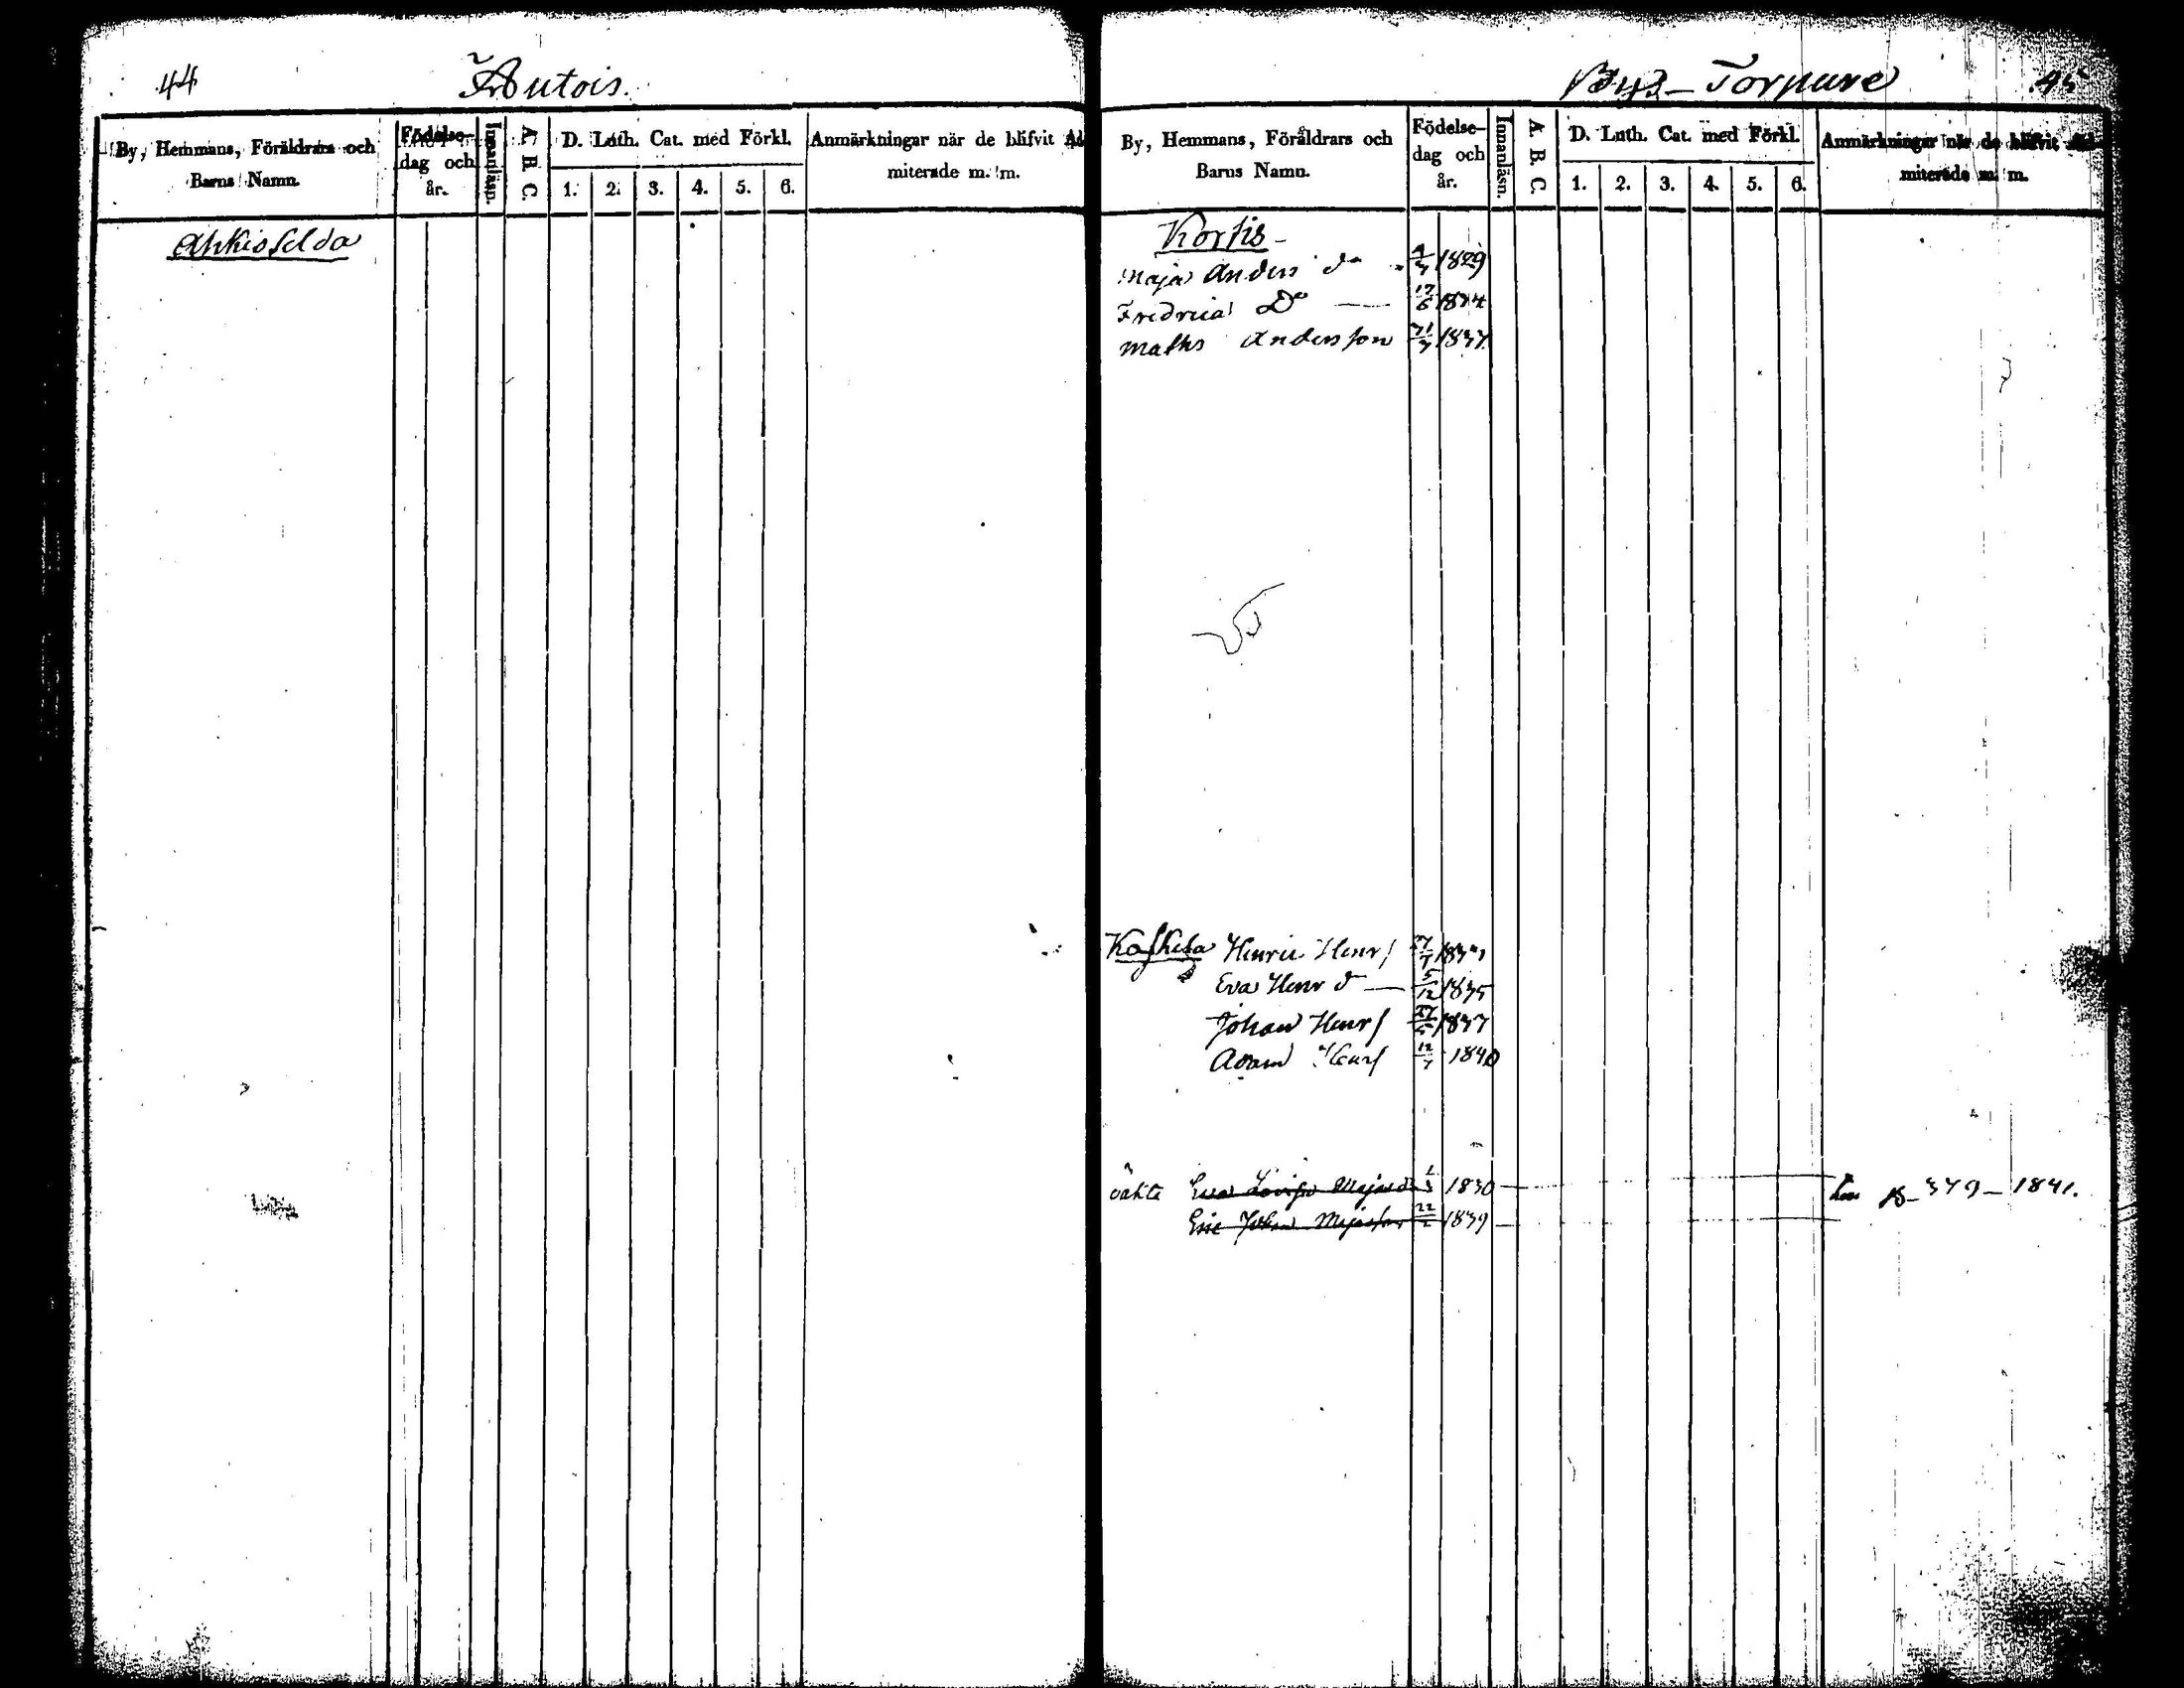 44
Autois.
By, Hemmans, Föräldrars och Barns Namn.
Födelse-dag och år.
Innanläsn.
A. B. C.
D. Luth. Cat. med Förkl.
1. 2. 3. 4. 5. 6.
Anmärkningar när de blifvit Ad
miterade m. m.
Ahkisselda
Bys - Torpare
45
By, Hemmans, Föräldrars och Barns Namn.
Födelse-dag och år.
Innanläsn.
A. B. C.
D. Luth. Cat. med Förkl.
1. 2. 3. 4. 5. 6.
Anmärkningar när de blifvit Ad-
miterade m. m.
Kortis -
Maja Anders dr 1829
Fredrica Do — 17/6 1834
Maths Andersson 1837
Henric Henrs
Eva Henr d — 5/12 1835
Johan Henrs 27/5 1837
Adam Henrs 12/7 1840
oäkta Eva Lovisa Majasd. 1830 — 379 - 1841.
Eric Johan Majasson 22/2 1839